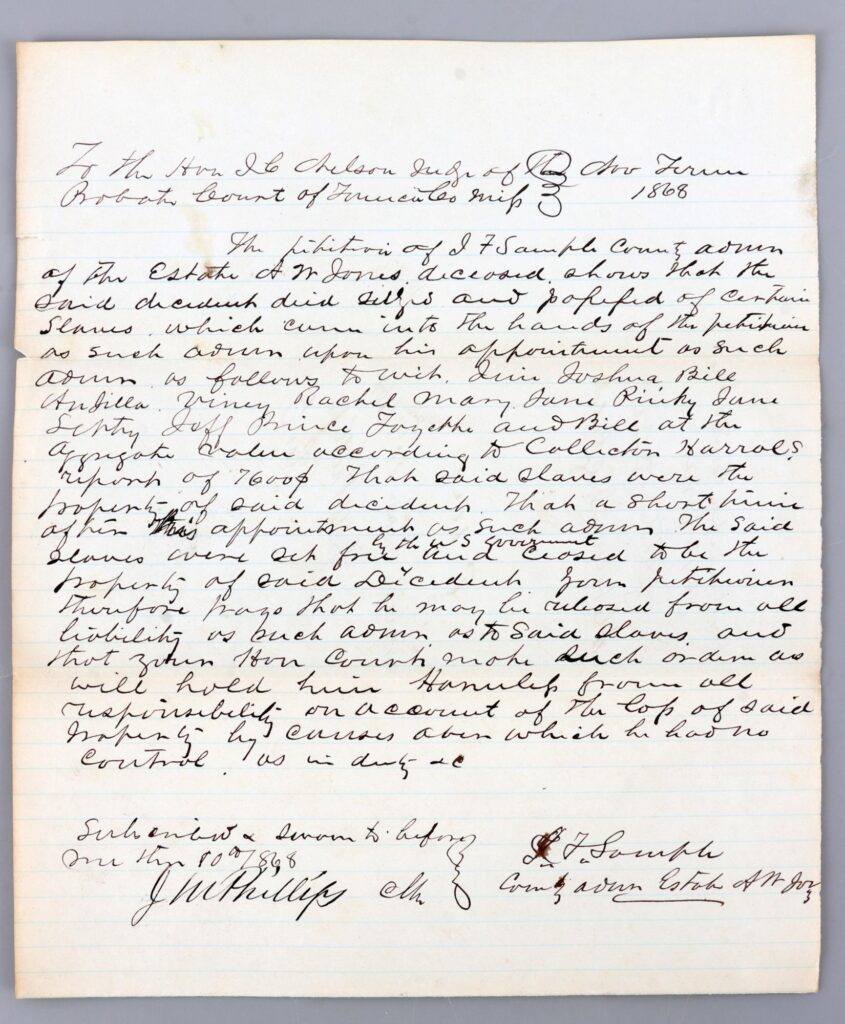 To the Hon J C Nelson Judge of the Nov Term
Probate Court of Tunica Co Miss 1868
The petition of J F Sample County admr
of the Estate A W Jones deceased shows that the
said decedent died seized and possessed of certain
Slaves which came into the hands of the petitioner
as such admr upon his appointment as such
admr as follows to wit. Jim Joshua Bill
Viney Rachel Mary Jane Pinky Jane
Jeff Prince Fayette and Bill at the
aggregate value according to Collector Harrals
report of 7600$ That said slaves were the
property of said decedent. That a short time
after his appointment as such admr the said
slaves were set free by the U S Government and ceased to be the
property of said Decedent Your petitioner
therefore prays that he may be released from all
liability as such admr as to said slaves and
that your Hon Court make such orders as
will hold him Harmless from all
responsibility on account of the loss of said
property by causes over which he had no
control. as in duty &c
Subscribed & sworn to before
me this 10th 1868
J M Phillips Clk
J. F. Sample
County admr Estate A W Jones